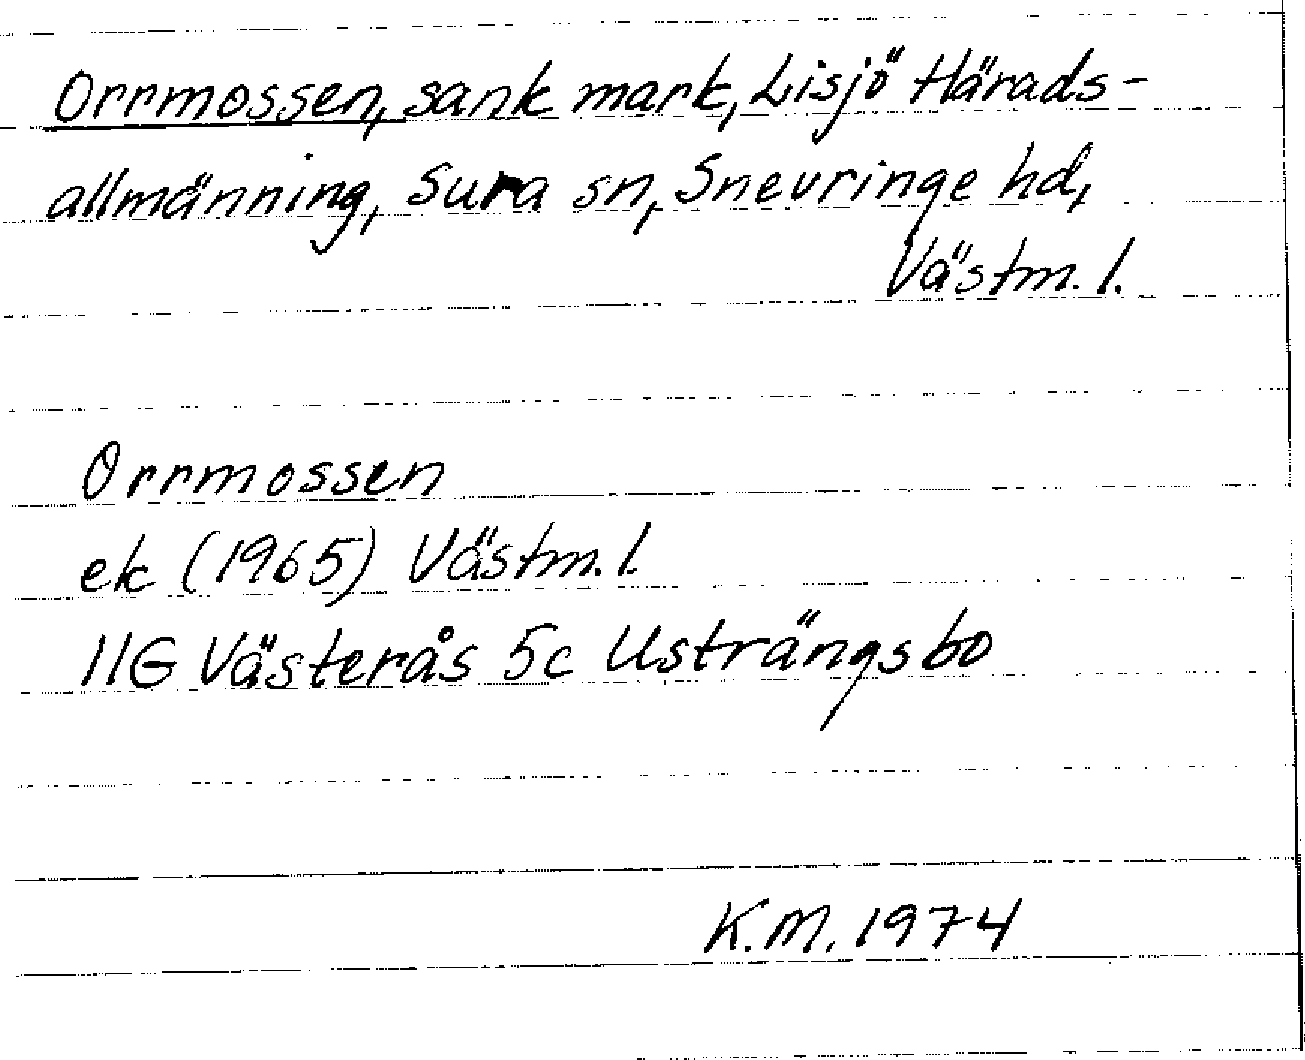 Orrmossen, sank mark, Lisjö Härads-
allmänning, Sura sn, Snevringe hd,
Västm. l.
Orrmossen
ek (1965) Västm. l.
11G Västerås 5c Usträngsbo
K.M. 1974